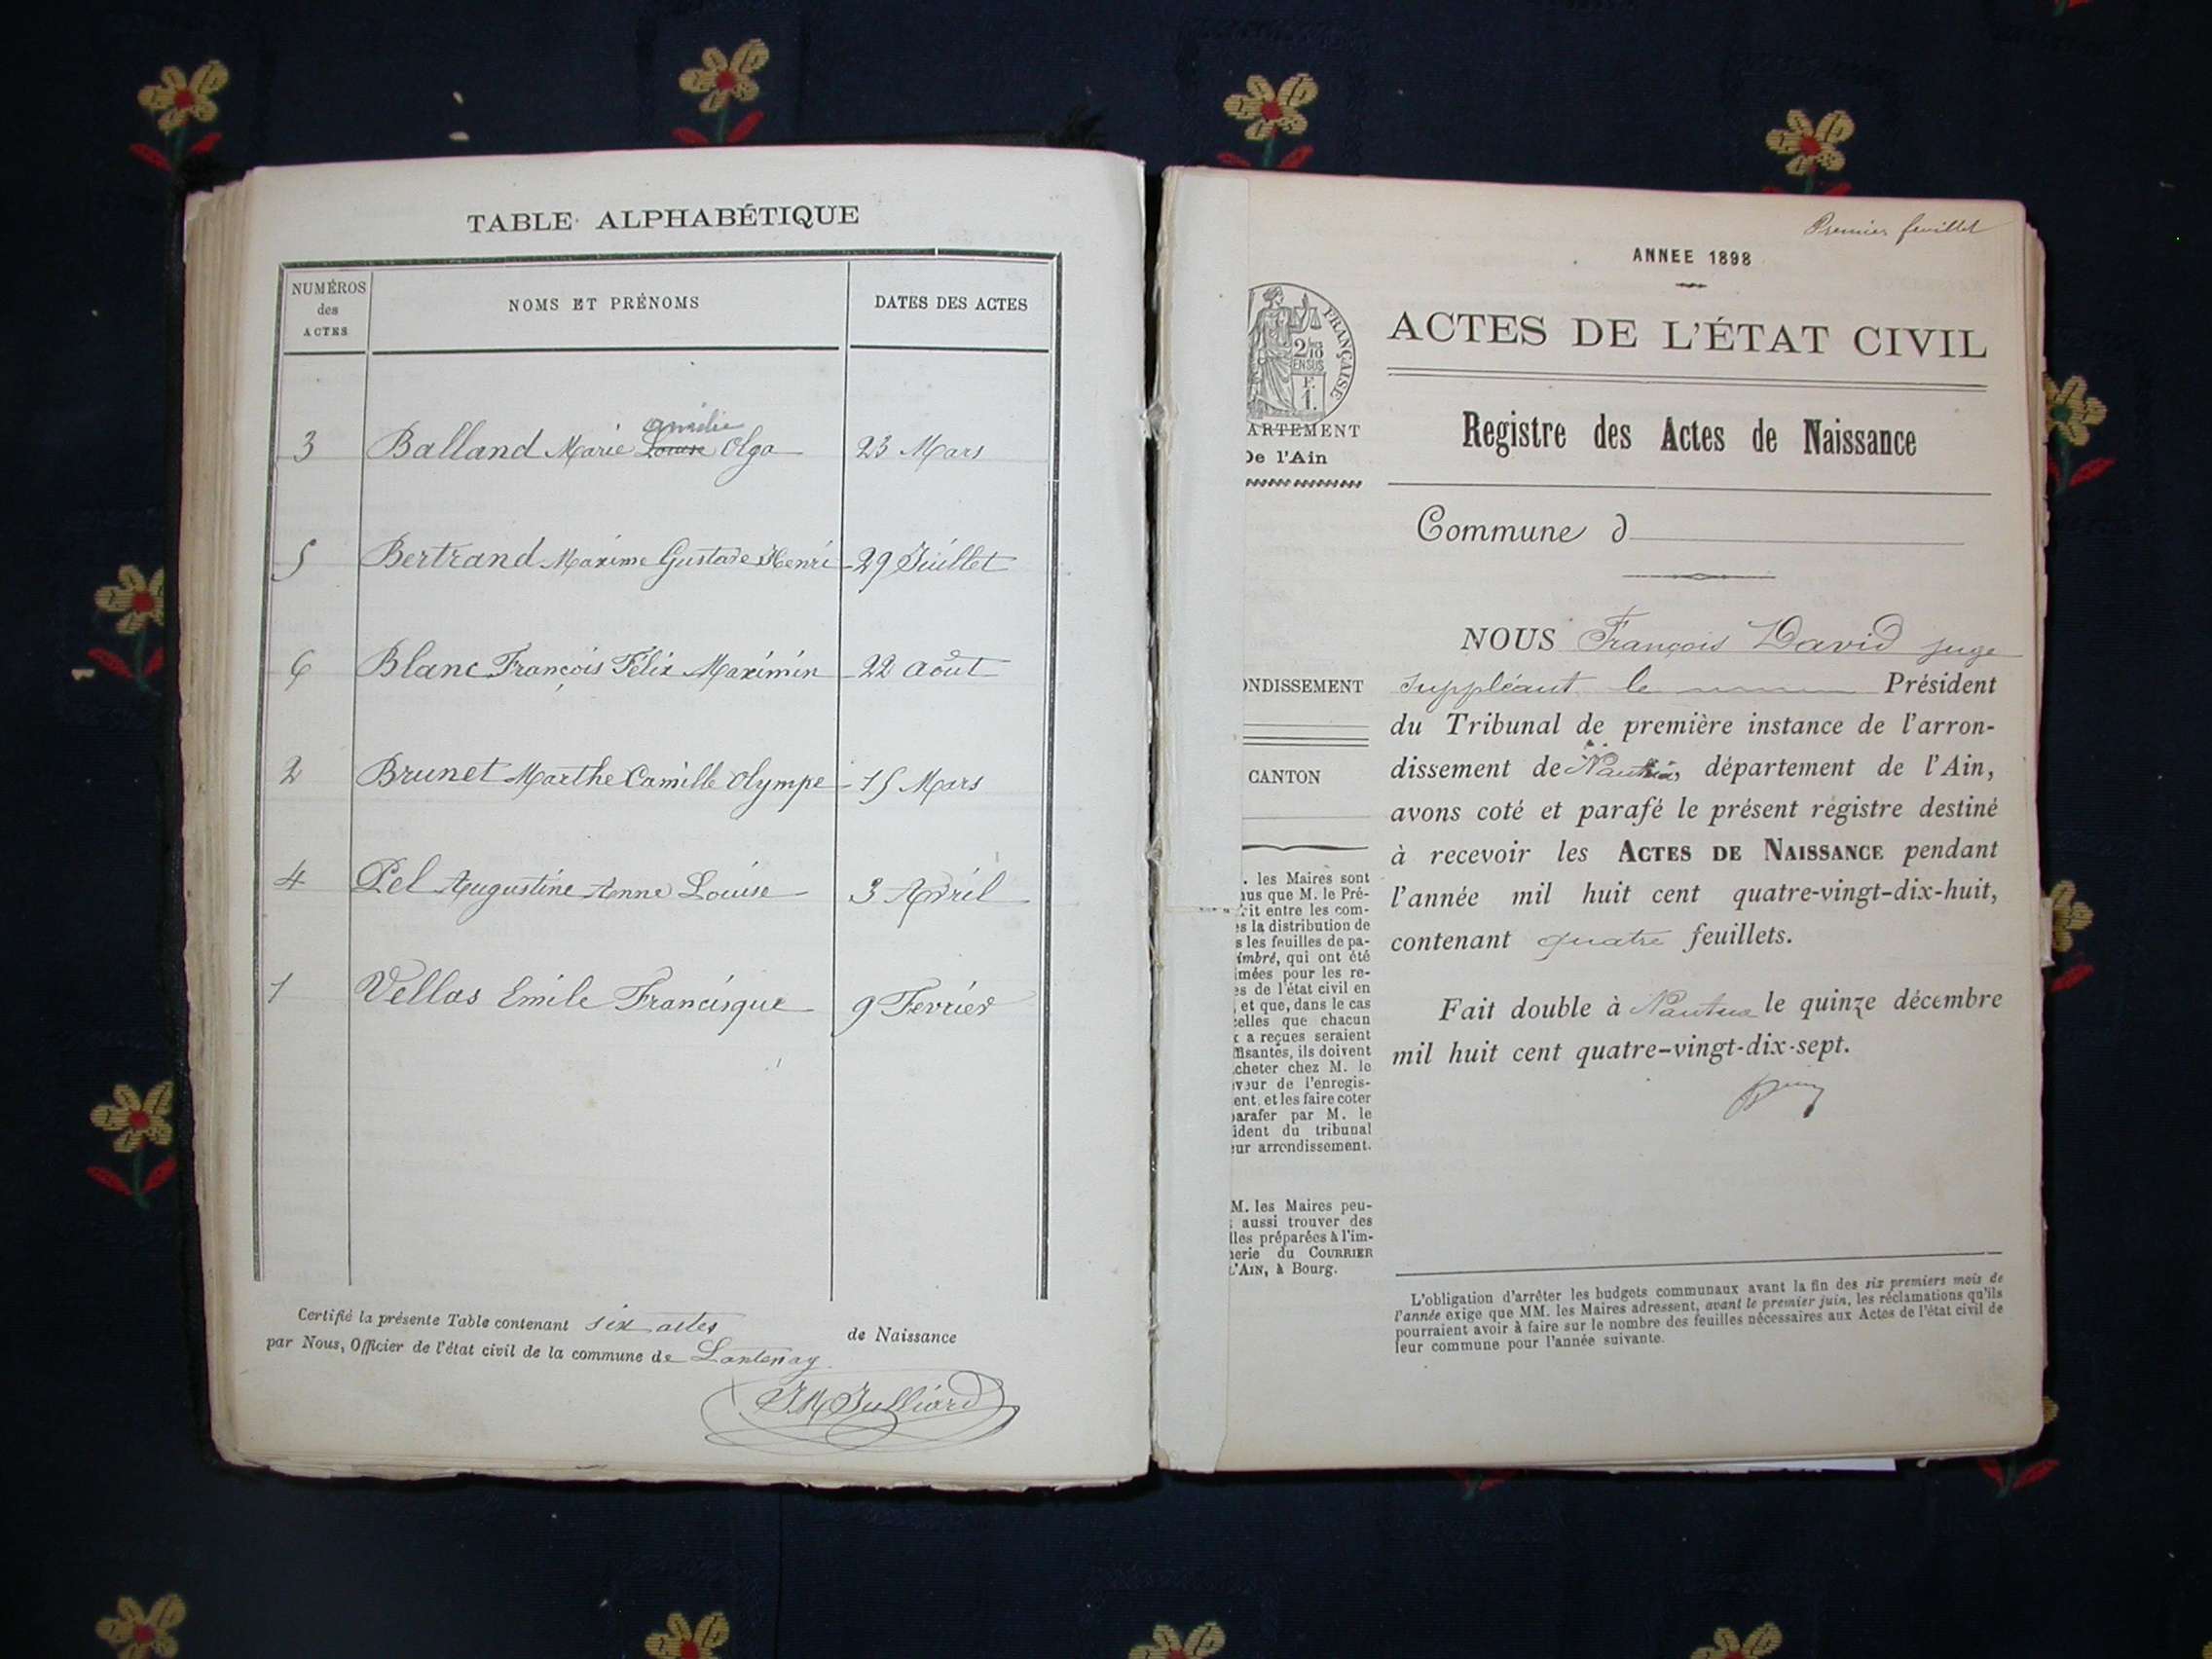 TABLE ALPHABÉTIQUE
NUMÉROS
des
ACTES
NOMS ET PRÉNOMS
DATES DES ACTES
3 Balland Marie Louise Amélie Olga 23 Mars
5 Bertrand Maxime Gustave Henri 29 Juillet
6 Blanc François Félix Maximin 22 août
2 Brunet Marthe Camille Olympe 15 Mars
4 Pel Augustine Anne Louise 3 Avril
1 Vellas Emile Francisque 9 Fevrier
Certifié la présente Table contenant six actes de Naissance
par Nous, Officier de l'état civil de la commune de Lantenay
Julliard
Premier feuillet
ANNEE 1898
FRANÇAISE
2/10
EN SUS
F.
1.
ACTES DE L'ÉTAT CIVIL
Registre des Actes de Naissance
ARTEMENT
De l'Ain
Commune d
NOUS François David juge
suppléant le Président
du Tribunal de première instance de l'arron-
dissement de Nantua, département de l'Ain,
avons coté et parafé le présent registre destiné
à recevoir les ACTES DE NAISSANCE pendant
l'année mil huit cent quatre-vingt-dix-huit,
contenant quatre feuillets.
Fait double à Nantua le quinze décembre
mil huit cent quatre-vingt-dix-sept.
ONDISSEMENT
CANTON
. les Maires sont
nus que M. le Pré-
rit entre les com-
es la distribution de
s les feuilles de pa-
imbré, qui ont été
imées pour les re-
es de l'état civil en
, et que, dans le cas
celles que chacun
x a reçues seraient
ffisantes, ils doivent
cheter chez M. le
veur de l'enregis-
ent, et les faire coter
parafer par M. le
ident du tribunal
eur arrondissement.
M. les Maires peu-
aussi trouver des
lles préparées à l'im-
nerie du COURRIER
L'AIN, à Bourg.
L'obligation d'arrêter les budgets communaux avant la fin des six premiers mois de
l'année exige que MM. les Maires adressent, avant le premier juin, les réclamations qu'ils
pourraient avoir à faire sur le nombre des feuilles nécessaires aux Actes de l'état civil de
leur commune pour l'année suivante.